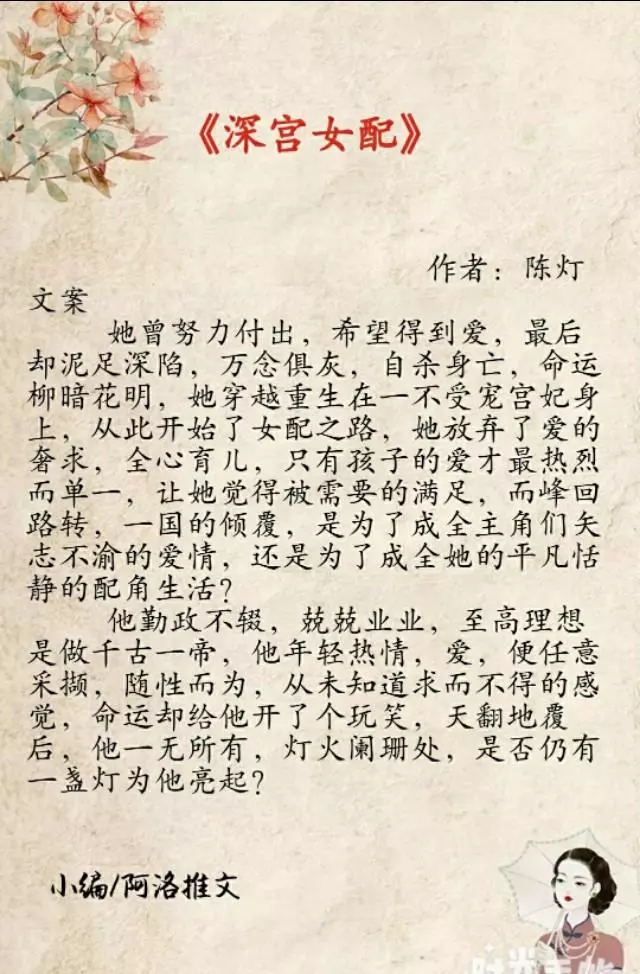 《深宫女配》
作者：陈灯
文案
她曾努力付出，希望得到爱，最后
却泥足深陷，万念俱灰，自杀身亡，命运
柳暗花明，她穿越重生在一不受宠宫妃身
上，从此开始了女配之路，她放弃了爱的
奢求，全心育儿，只有孩子的爱才最热烈
而单一，让她觉得被需要的满足，而峰回
路转，一国的倾覆，是为了成全主角们矢
志不渝的爱情，还是为了成全她的平凡恬
静的配角生活？
他勤政不辍，兢兢业业，至高理想
是做千古一帝，他年轻热情，爱，便任意
采撷，随性而为，从未知道求而不得的感
觉，命运却给他开了个玩笑，天翻地覆
后，他一无所有，灯火阑珊处，是否仍有
一盏灯为他亮起？
小编/阿洛推文